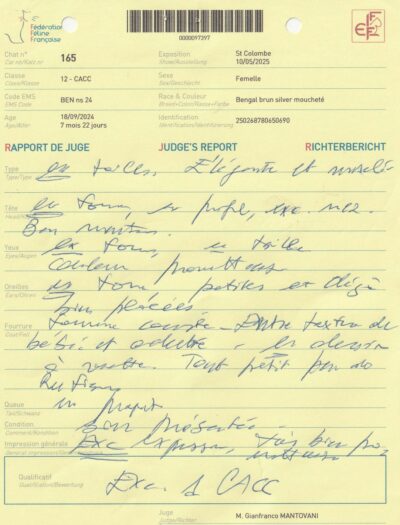 Fédération
Féline
Française
0000097397
FIFe
Chat n° 165 Exposition St Colombe
Car no/Katz nr Show/Ausstellung 10/05/2025
Classe 12 - CACC Sexe Femelle
Class/Klasse Sex/Geschlecht
Code EMS BEN ns 24 Race & Couleur Bengal brun silver moucheté
EMS Code Breed+Color/Rasse+Farbe
Age 18/09/2024 Identification 250268780650690
Age/Alter 7 mois 22 jours Identification/Identifizierung
RAPPORT DE JUGE JUDGE'S REPORT RICHTERBERICHT
Type ex taille. Elégante et musclée
Type/Type
Tête ex forme, ex profil, exc. nez.
Bon menton.
Yeux ex forme, ex taille
Eyes/Augen couleur prometteuse
Oreilles ex forme, petites et déjà
Ears/Ohren bien placées
Fourrure Entre texture de
Coat/Fell bébé et adulte, ex dessin
à rosette. Tout petit peu de
Queue
Tail/Schwanz
Condition bien présentée
Comment/Kondition
Impression générale Exc expression, très bien pro-
General impression metteuse
Qualificatif Exc. 1 CACC
Qualification/Bewertung
Juge M. Gianfranco MANTOVANI
Judge/Richter